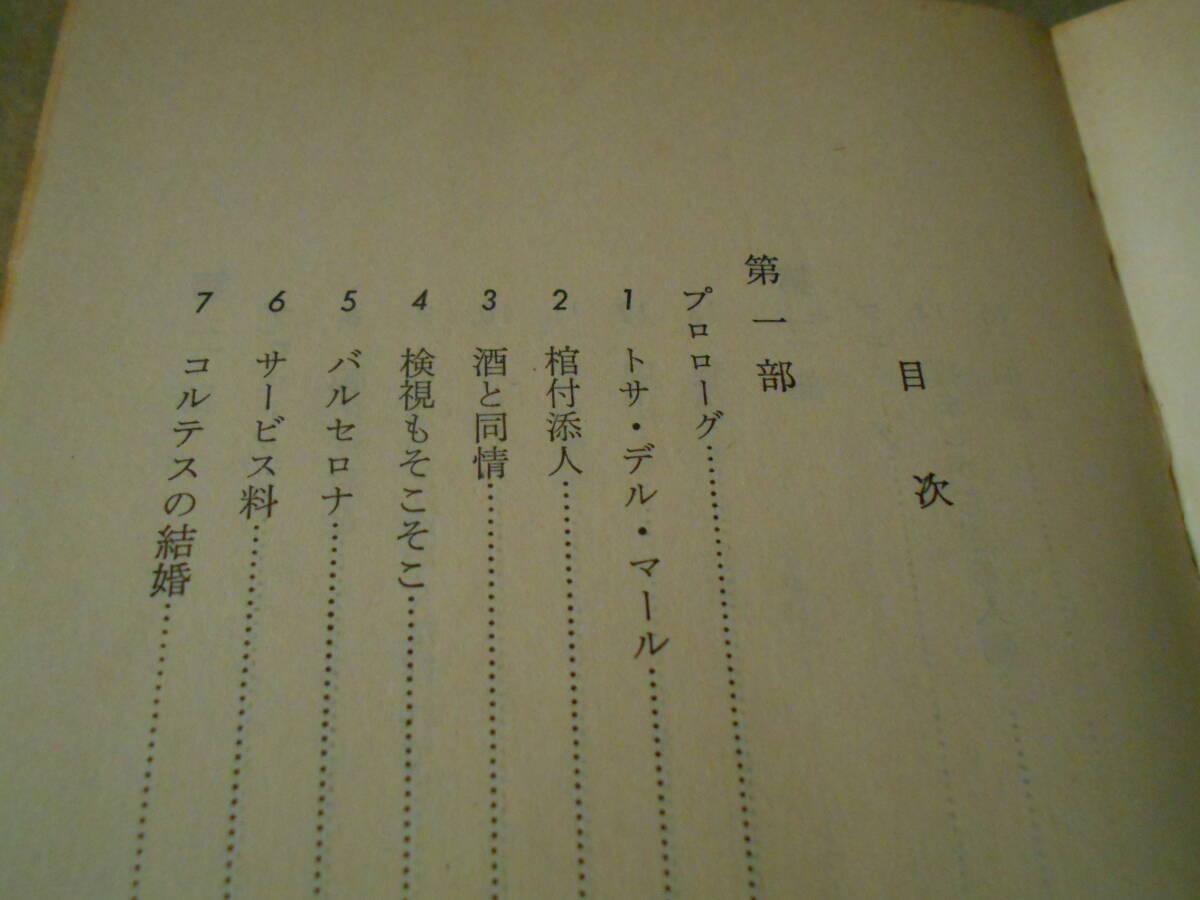 目次
第一部
プロローグ
1 トサ・デル・マール
2 棺付添人
3 酒と同情
4 検視もそこそこ
5 バルセロナ
6 サービス料
7 コルテスの結婚